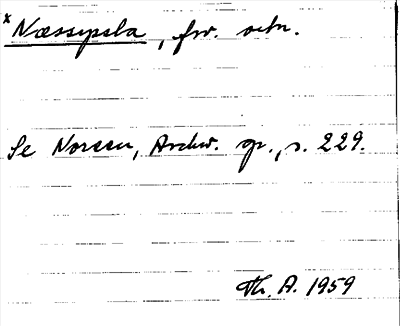 * Næssipsla, fsv. ortn.
Se Noreen, Archiv. gr., s. 229.
Th. A. 1959